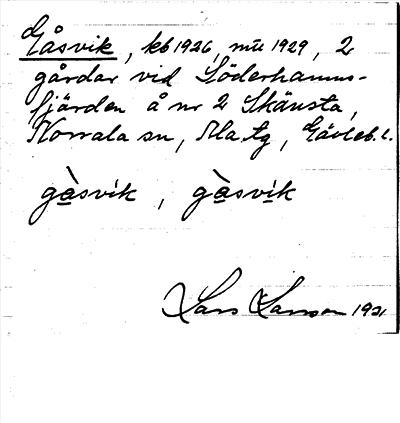 Gåsvik, kb 1926, mü 1929, 2
gårdar vid Söderhamns-
fjärden å nr 2 Skänsta,
Norrala sn, Ala tg, Gävleb. l.
gàsvik, gàsvik
Lars Larsson 1931